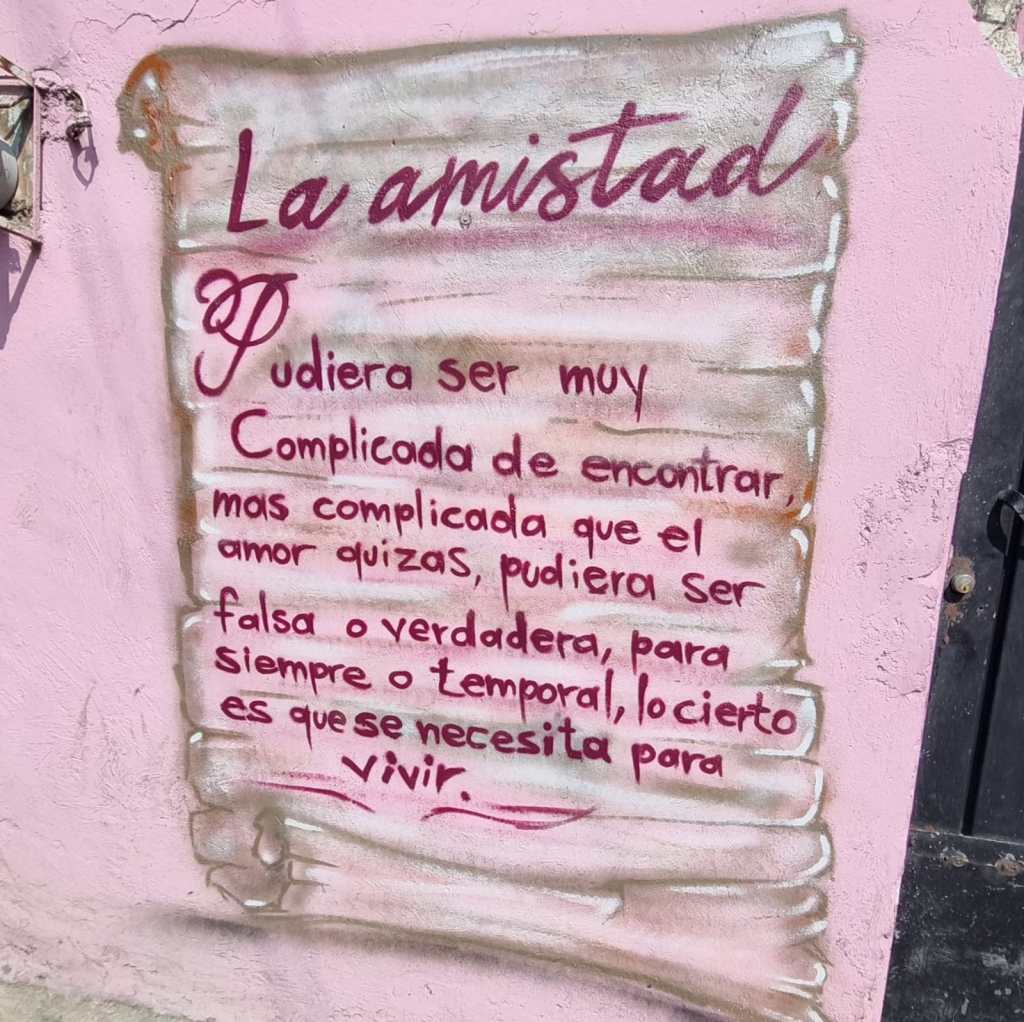 La amistad
Pudiera ser muy
Complicada de encontrar,
mas complicada que el
amor quizas, pudiera ser
falsa o verdadera, para
siempre o temporal, lo cierto
es que se necesita para
vivir.